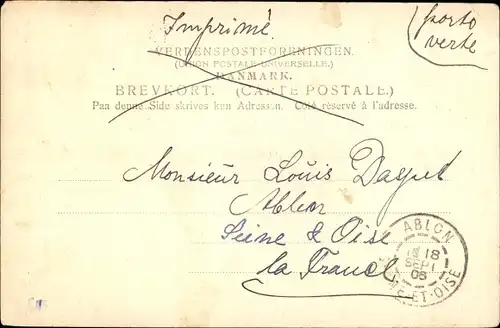 Imprimé
porto
verte
VERDENSPOSTFORENINGEN.
(UNION POSTALE UNIVERSELLE.)
DANMARK.
BREVKORT. (CARTE POSTALE.)
Paa denne Side skrives kun Adressen. Coté réservé à l'adresse.
Monsieur Louis
Ablon
Seine & Oise
la France
ABLON
18
SEPT
ET-OISE